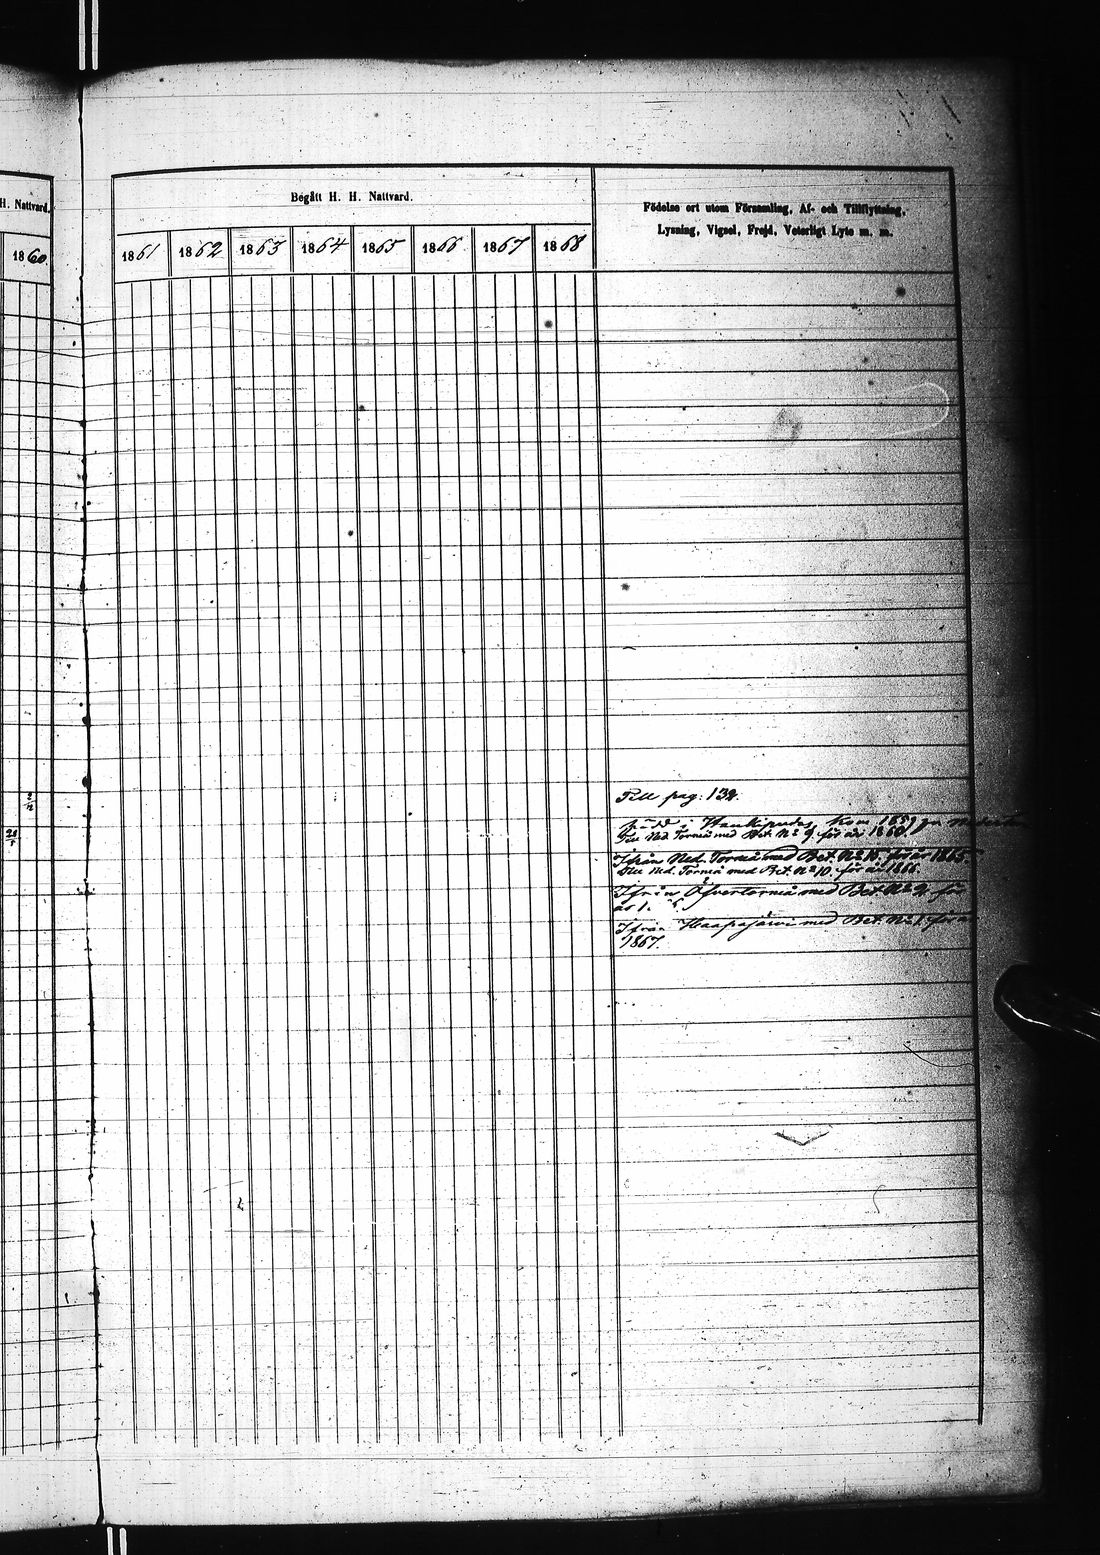 H. Nattvard.
1860
2/12
24/5
Begått H. H. Nattvard.
1861 1862 1863 1864 1865 1866 1867 1868
Födelse ort utom Församling, Af- och Tillflyttning,
Lysning, Vigsel, Frejd, Veterligt Lyte m. m.
Till pag: 132.
född i Haukipudas, kom 1859
Till Ned. Torneå med Bet. No 9. för år 1860
Ifrån Ned. Torneå med Bet. No 15. för år 1865.
Till Ned. Torneå med Bet. No 10. för år 1866.
Ifrån Öfvertorneå med Bet. No 2, för
Ifrån Haapajärvi med Bet. No 1. för
1867.